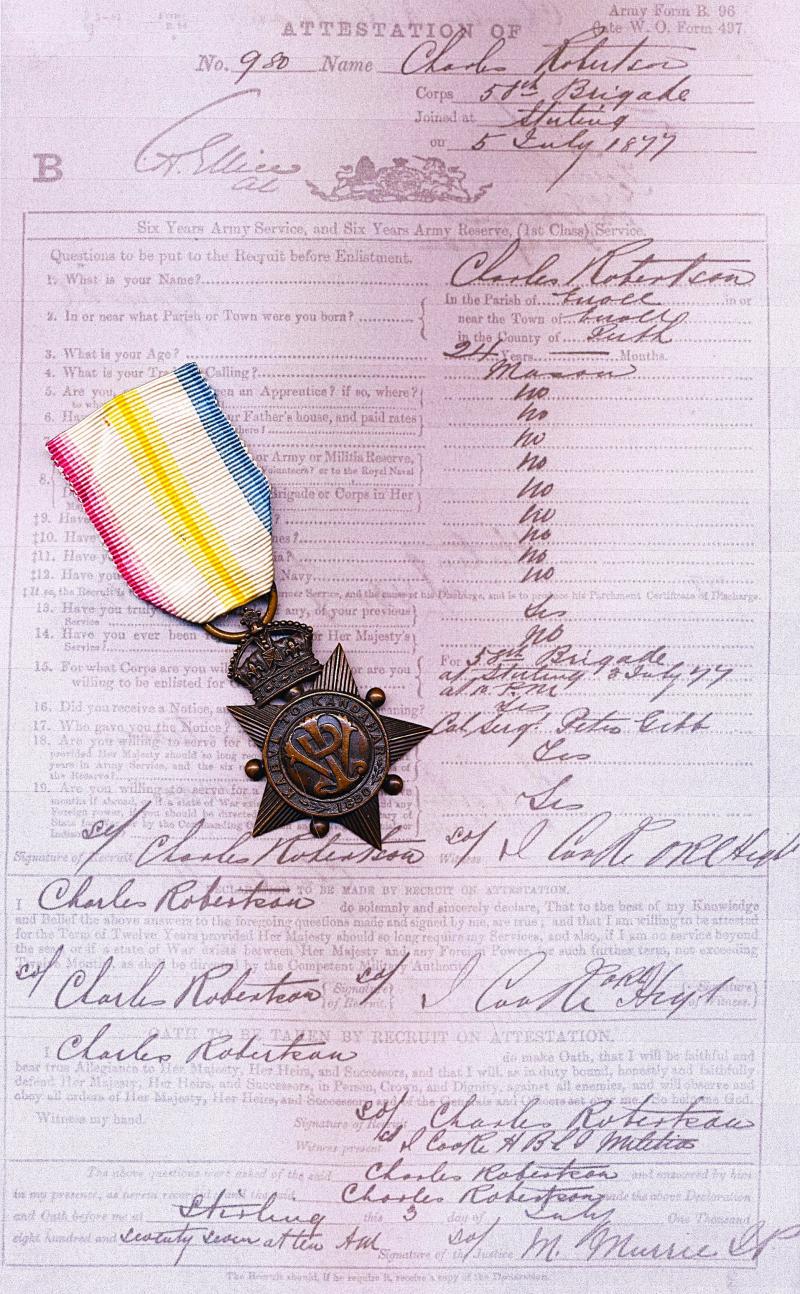 Army Form B. 96
W. O. Form 497.
ATTESTATION OF
No. 980 Name Charles Robertson
Corps 58th Brigade
Joined at Stirling
on 5 July 1877
B
at
Six Years Army Service, and Six Years Army Reserve, (1st Class) Service.
Questions to be put to the Recruit before Enlistment.
1. What is your Name? Charles Robertson
2. In or near what Parish or Town were you born? In the Parish of Errol in or
near the Town of Errol
in the County of Perth
3. What is your Age? 24 Years Months.
4. What is your Calling? Mason
5. Are you an Apprentice? if so, where? No
6. your Father's house, and paid rates No
No
or Army or Militia Reserve, No
Volunteers? or to the Royal Naval
8. Brigade or Corps in Her No
‡9. Have No
‡10. Have No
‡11. Have No
‡12. Have you Navy No
‡If so, the Recruit is Service, and the cause of his Discharge, and is to produce his Parchment Certificate of Discharge.
13. Have you truly any, of your previous Yes
Service
14. Have you ever been Her Majesty's No
Service?
15. For what Corps are you or are you For 58th Brigade
willing to be enlisted for at Stirling July 77
at
16. Did you receive a Notice, meaning? Yes
17. Who gave you the Notice? Col. Sergt. Peter Gibb
18. Are you willing to serve for Yes
provided Her Majesty should so long
years in Army Service, and the six
the Reserve?
19. Are you willing to serve for a Yes
months if abroad, if a state of War any
Foreign power, if you should be directed
KABUL TO KANDAHAR
VRI
1880
Signature of Recruit Charles Robertson Witness I Cooke
DECLARATION TO BE MADE BY RECRUIT ON ATTESTATION.
I Charles Robertson do solemnly and sincerely declare, That to the best of my Knowledge
and Belief the above answers to the foregoing questions made and signed by me, are true; and that I am willing to be attested
for the Term of Twelve Years provided Her Majesty should so long require my Services, and also, if I am on service beyond
the seas, or if a state of War exists between Her Majesty and any Foreign Power, for such further term, not exceeding
Twelve Months, as shall be directed by the Competent Military Authority.
Charles Robertson Signature of Recruit. I Cooke Signature of Witness.
OATH TO BE TAKEN BY RECRUIT ON ATTESTATION.
I Charles Robertson do make Oath, that I will be faithful and
bear true Allegiance to Her Majesty, Her Heirs, and Successors, and that I will, as in duty bound, honestly and faithfully
defend Her Majesty, Her Heirs, and Successors, in Person, Crown, and Dignity, against all enemies, and will observe and
obey all orders of Her Majesty, Her Heirs, and Successors, and of the Generals and Officers set over me. So help me God.
Witness my hand. Signature of Recruit Charles Robertson
Witness present I Cooke H B L I Militia
The above questions were asked of the said Charles Robertson and answered by him
in my presence, as herein recorded; and the said Charles Robertson made the above Declaration
and Oath before me at Stirling this 3 day of July One Thousand
eight hundred and seventy seven at ten AM
Signature of the Justice M. Murrie J.P.
The Recruit should, if he require it, receive a copy of the Declaration.